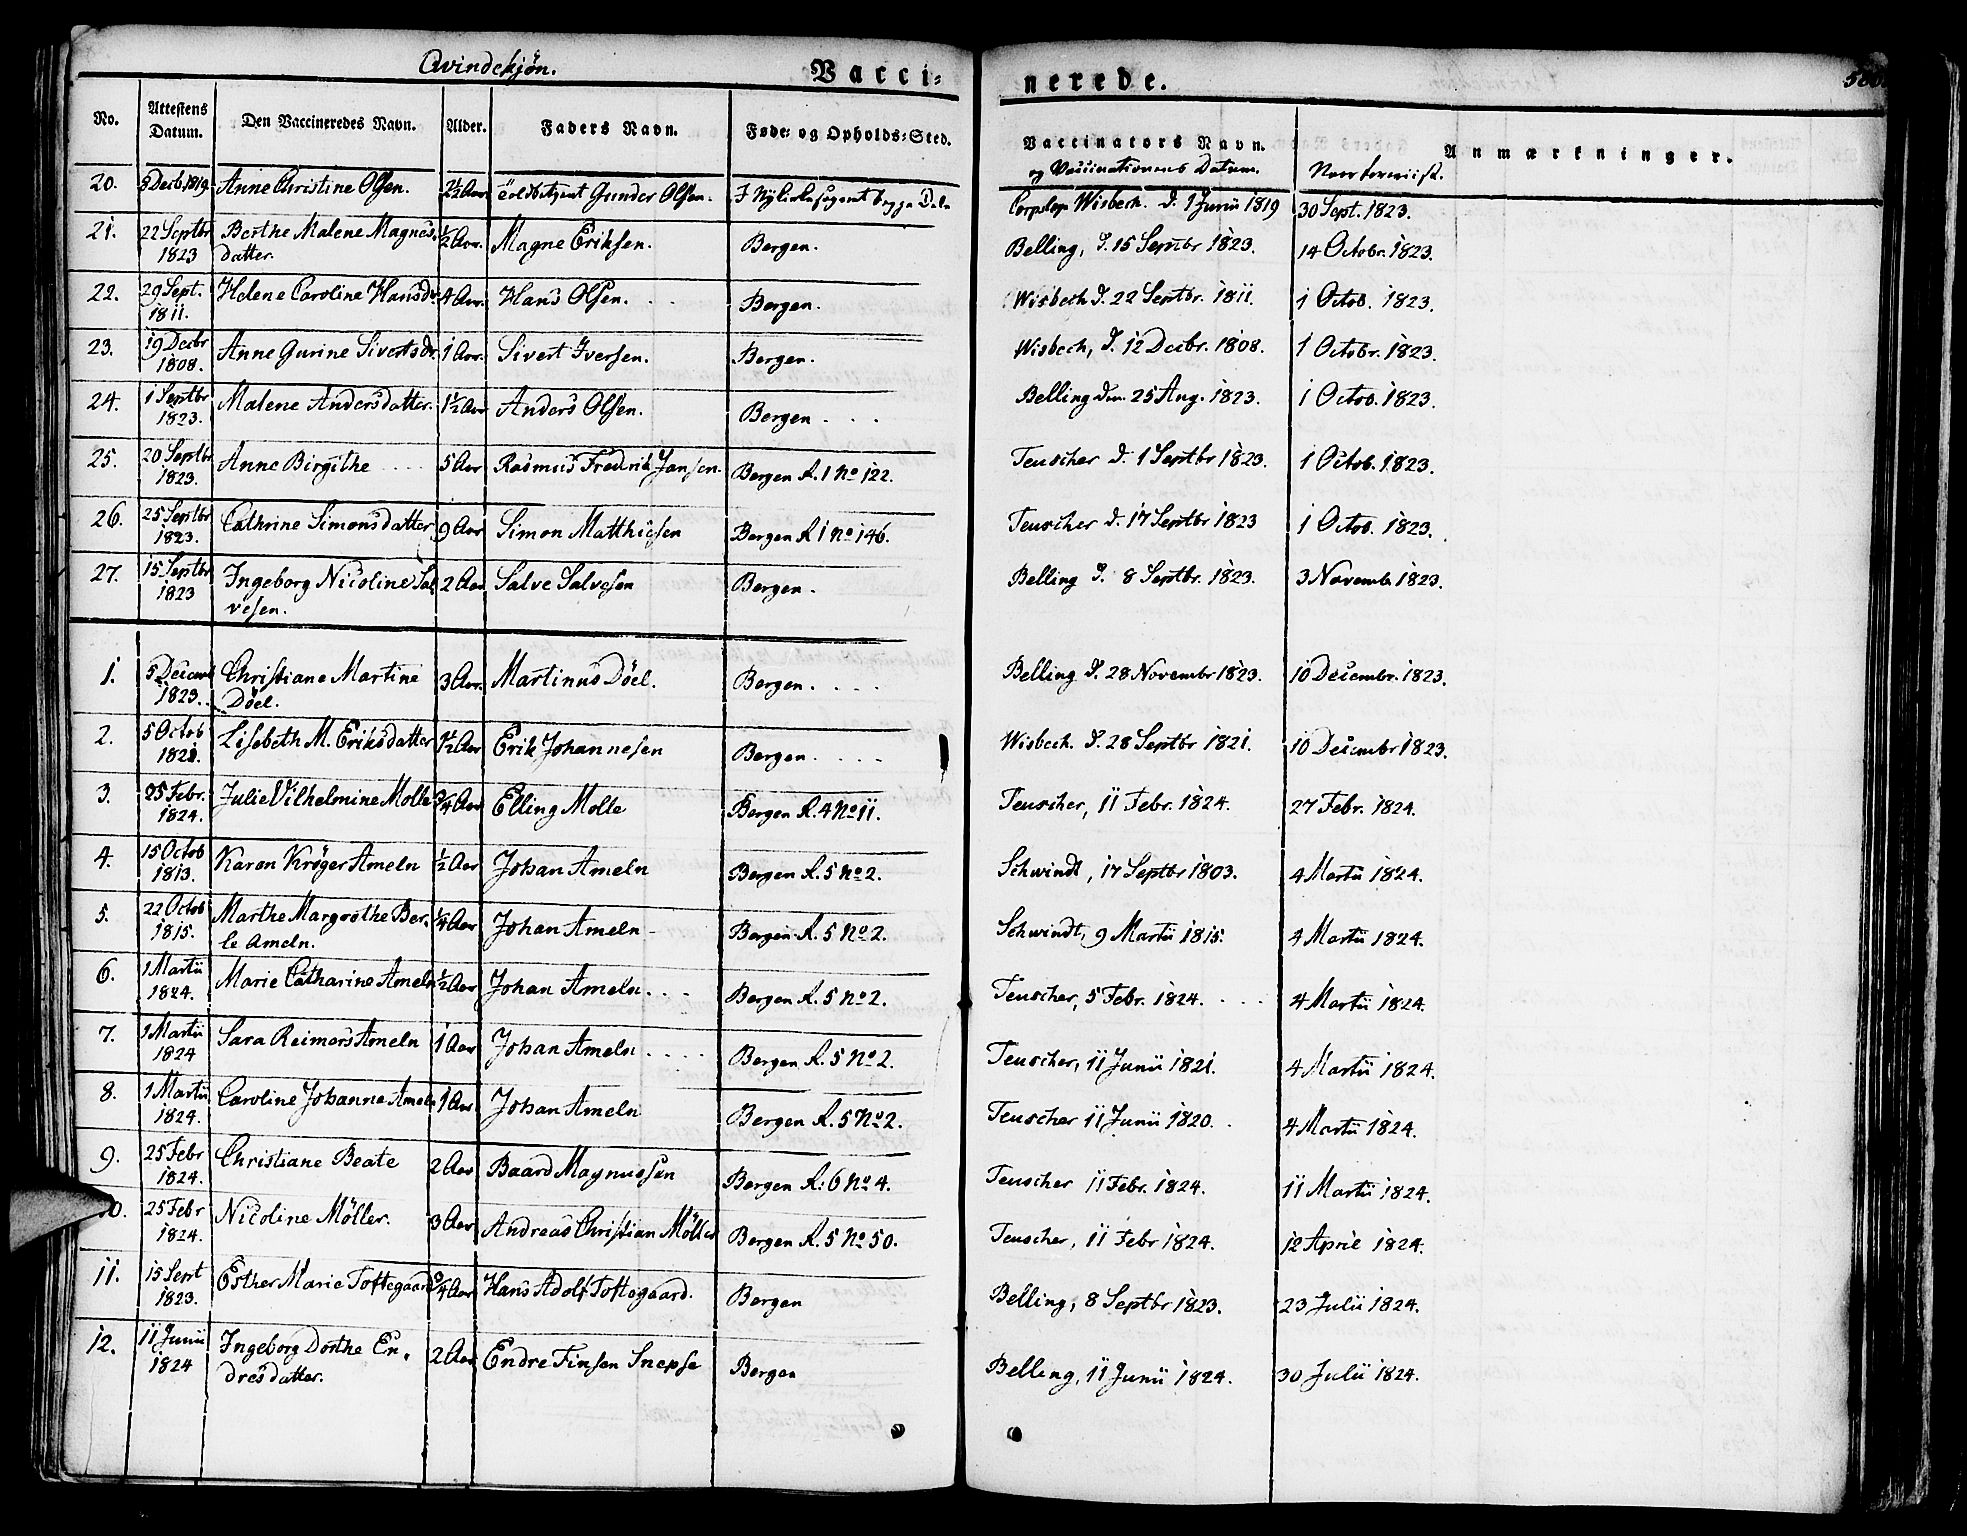 Qvindekjön.
Vacci-
nerede.
No.
Attestens Datum.
Den Vaccineredes Navn.
Alder.
Faders Navn.
Føde- og Opholds-Sted.
Vaccinators Navn.
og Vaccinationens Datum.
Anmærkninger.
20. 5 Decb. 1819. Anne Christine Olsen. 2½ Aar Gunder Olsen. Wisbech. d. 1 Junii 1819 30 Sept. 1823.
21. 22 Septbr 1823 Berthe Malene Magnes- ½ Aar. Magne Eriksen. Bergen. Belling, d. 15 Septbr 1823. 14 Octobr. 1823.
datter.
22. 29 Sept. 1811. Helene Caroline Hansdr. 4 Aar. Hans Olsen. Bergen. Wisbech d. 22 Septbr. 1811. 1 Octob. 1823.
23. 19 Decbr 1808. Anne Gurine Sivertsdr. 1 Aar. Sivert Iversen. Bergen. Wisbech, d. 12 Decbr. 1808. 1 Octobr. 1823.
24. 1 Septbr 1823. Malene Andersdatter. 1½ Aar Anders Olsen. Bergen Belling den 25 Aug. 1823. 1 Octob. 1823.
25. 20 Septbr 1823. Anne Birgithe 5 Aar Rasmus Fredrik Jansen. Bergen R. 1 No 122. Teuscher d. 1 Septbr 1823. 1 Octob. 1823.
26. 25 Septbr 1823. Cathrine Simonsdatter 9 Aar Simon Matthiesen Bergen R 1 No 146. Teuscher d. 17 Septbr 1823 1 Octob. 1823.
27. 15 Septbr 1823 Ingeborg Nicoline Sal 2 Aar Salve Salvesen Bergen. Belling d. 8 Septbr. 1823. 3 Novemb. 1823.
vesen.
1. 5 Decemb 1823. Christiane Martine 3 Aar. Martinus Döel. Bergen. Belling d. 28 Novembr 1823. 10 Decembr. 1823.
Döel.
2. 5 Octob 1821. Lisebeth M. Eriksdatter 1½ Aar Erik Johannesen Bergen. Wisbech. d. 28 Septbr 1821. 10 Decembr 1823.
3. 25 Febr. 1824. Julie Vilhelmine Molle ¾ Aar Elling Molle Bergen R. 4 No 11. Teuscher, 11 Febr. 1824. 27 Febr. 1824.
4. 15 Octob 1813. Karen Krøger Ameln ½ Aar Johan Ameln Bergen R. 5 No 2. Schwindt, 17 Septbr 1803. 4 Martii 1824.
5. 22 Octob 1815. Marthe Margrethe Ber- ¼ Aar Johan Ameln Bergen R. 5 No 2. Schwindt, 9 Martii 1815. 4 Martii 1824.
le Ameln.
6. 1 Martii 1824. Marie Catharine Ameln ½ Aar Johan Ameln Bergen R. 5 No 2. Teuscher, 5 Febr. 1824. 4 Martii 1824.
7. 1 Martii 1824 Sara Reimers Ameln 1 Aar Johan Ameln Bergen R. 5 No 2. Teuscher, 11 Junii 1821. 4 Martii 1824.
8. 1 Martii 1824. Caroline Johanne Ameln 1 Aar Johan Ameln Bergen R. 5 No 2. Teuscher 11 Junii 1820. 4 Martii 1824.
9. 25 Febr 1824. Christiane Beate 2 Aar Baard Magnussen Bergen R: 6 No 4. Teuscher 11 Febr. 1824. 11 Martii 1824.
10. 25 Febr 1824. Nicoline Möller. 3 Aar Andreas Christian Möller Bergen R. 5 No 50. Teuscher, 11 Febr 1824. 12 April 1824.
11. 15 Sept 1823. Esther Marie Toftegaard ¾ Aar Hans Adolf Toftegaard. Bergen Belling, 8 Septbr 1823. 23 Julii 1824.
12. 11 Junii 1824 Ingeborg Dorthe En- 2 Aar Endre Finsen Snepse Bergen Belling, 11 Junii 1824. 30 Julii 1824.
dresdatter.